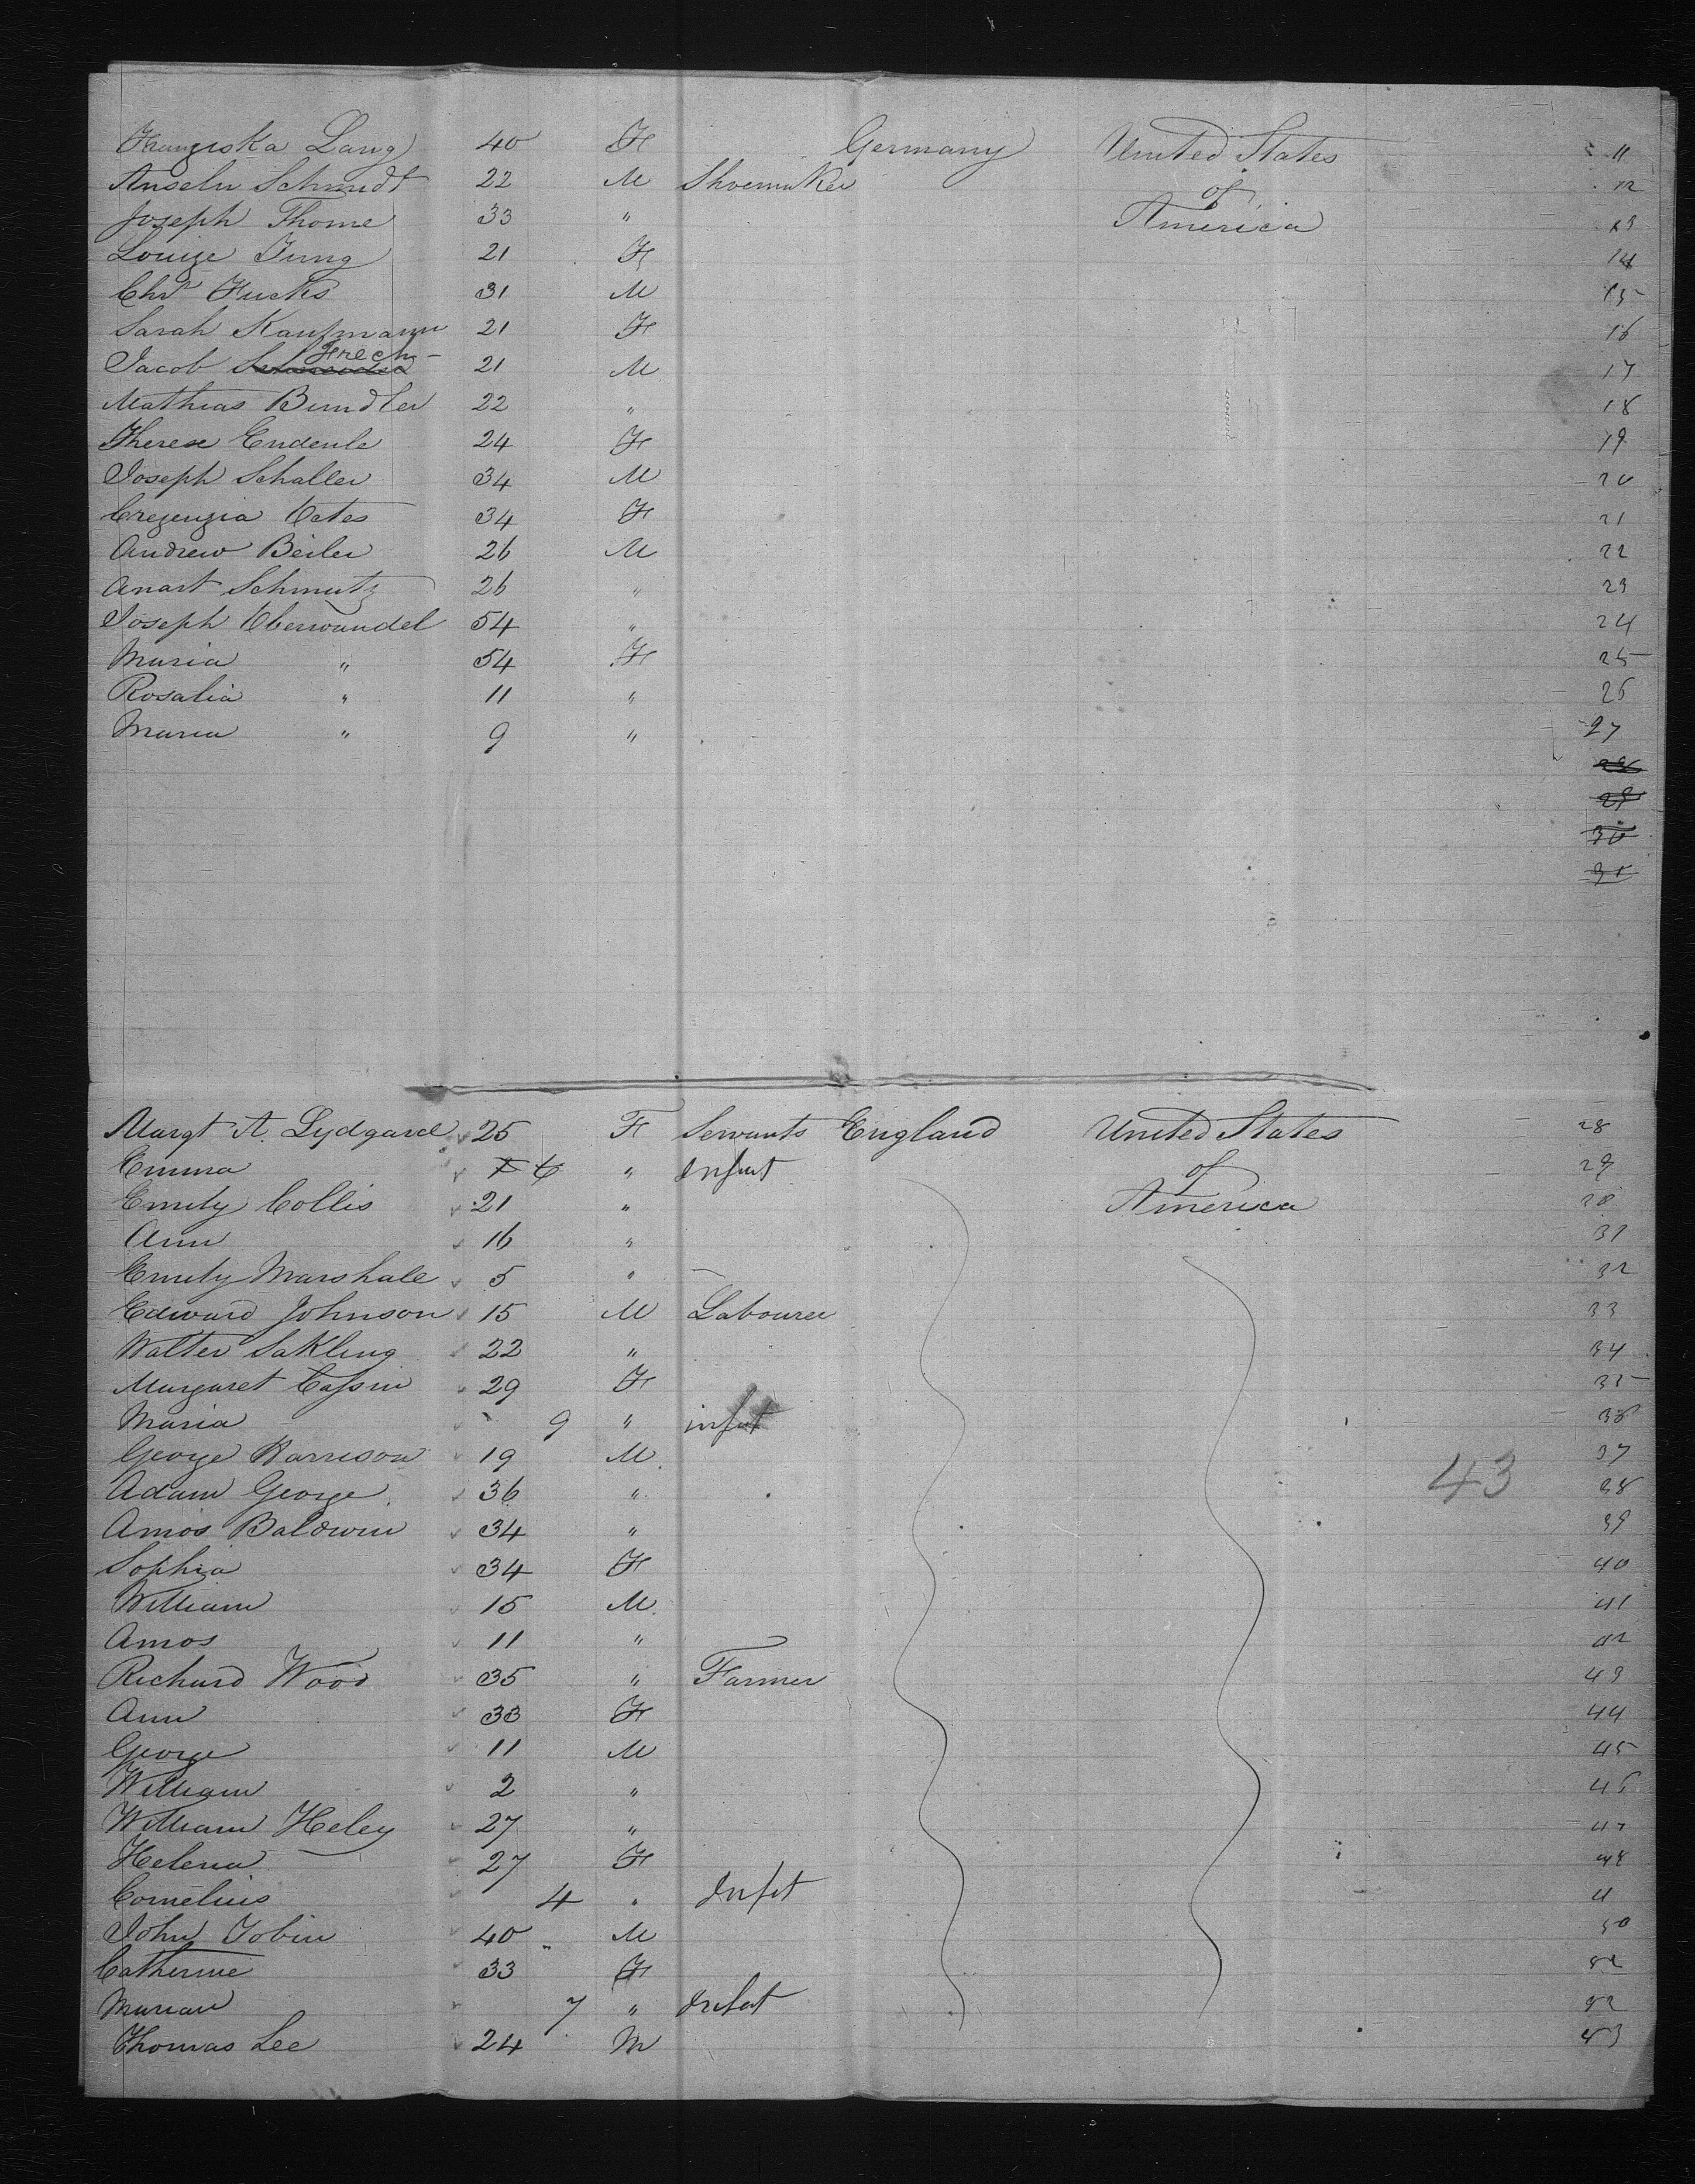 Franziska Lang 40 F Germany United States 11
Anselm Schmidt 22 M Shoemaker of 12
Joseph Thome 33 " America 13
Louize Jung 21 F 14
Chr Fuchs 31 M 15
Sarah Kaufmann 21 F 16
Jacob Frech 21 M 17
Mathias Bundler 22 " 18
Therese Endenle 24 F 19
Joseph Schaller 34 M 20
Crezenzia Oetes 34 F 21
Andrew Beiler 26 M 22
Anart Schmutz 26 " 23
Joseph Oberwandel 54 " 24
Maria " 54 F 25
Rosalia " 11 " 26
Maria " 9 " 27
28
29
30
31
Margt A. Lydgard 25 F Servants England United States 28
Emma 6 " Infant of 29
Emily Collis 21 " America 30
Ann 16 " 31
Emily Marshall 5 " 32
Edward Johnson 15 M Labourer 33
Walter Sakling 22 " 34
Margaret Cassin 29 F 35
Maria 9 " infat 36
George Harrison 19 M 37
Adam George 36 " 43 38
Amos Baldwin 34 " 39
Sophia 34 F 40
William 15 M 41
Amos 11 " 42
Richard Wood 35 " Farmer 43
Ann 33 F 44
George 11 M 45
William 2 " 46
William Heley 27 " 47
Helena 27 F 48
Cornelius 4 " Infet
John Tobin 40 " M 50
Catherine 33 F
Marian 7 " Infat 52
Thomas Lee 24 M 53